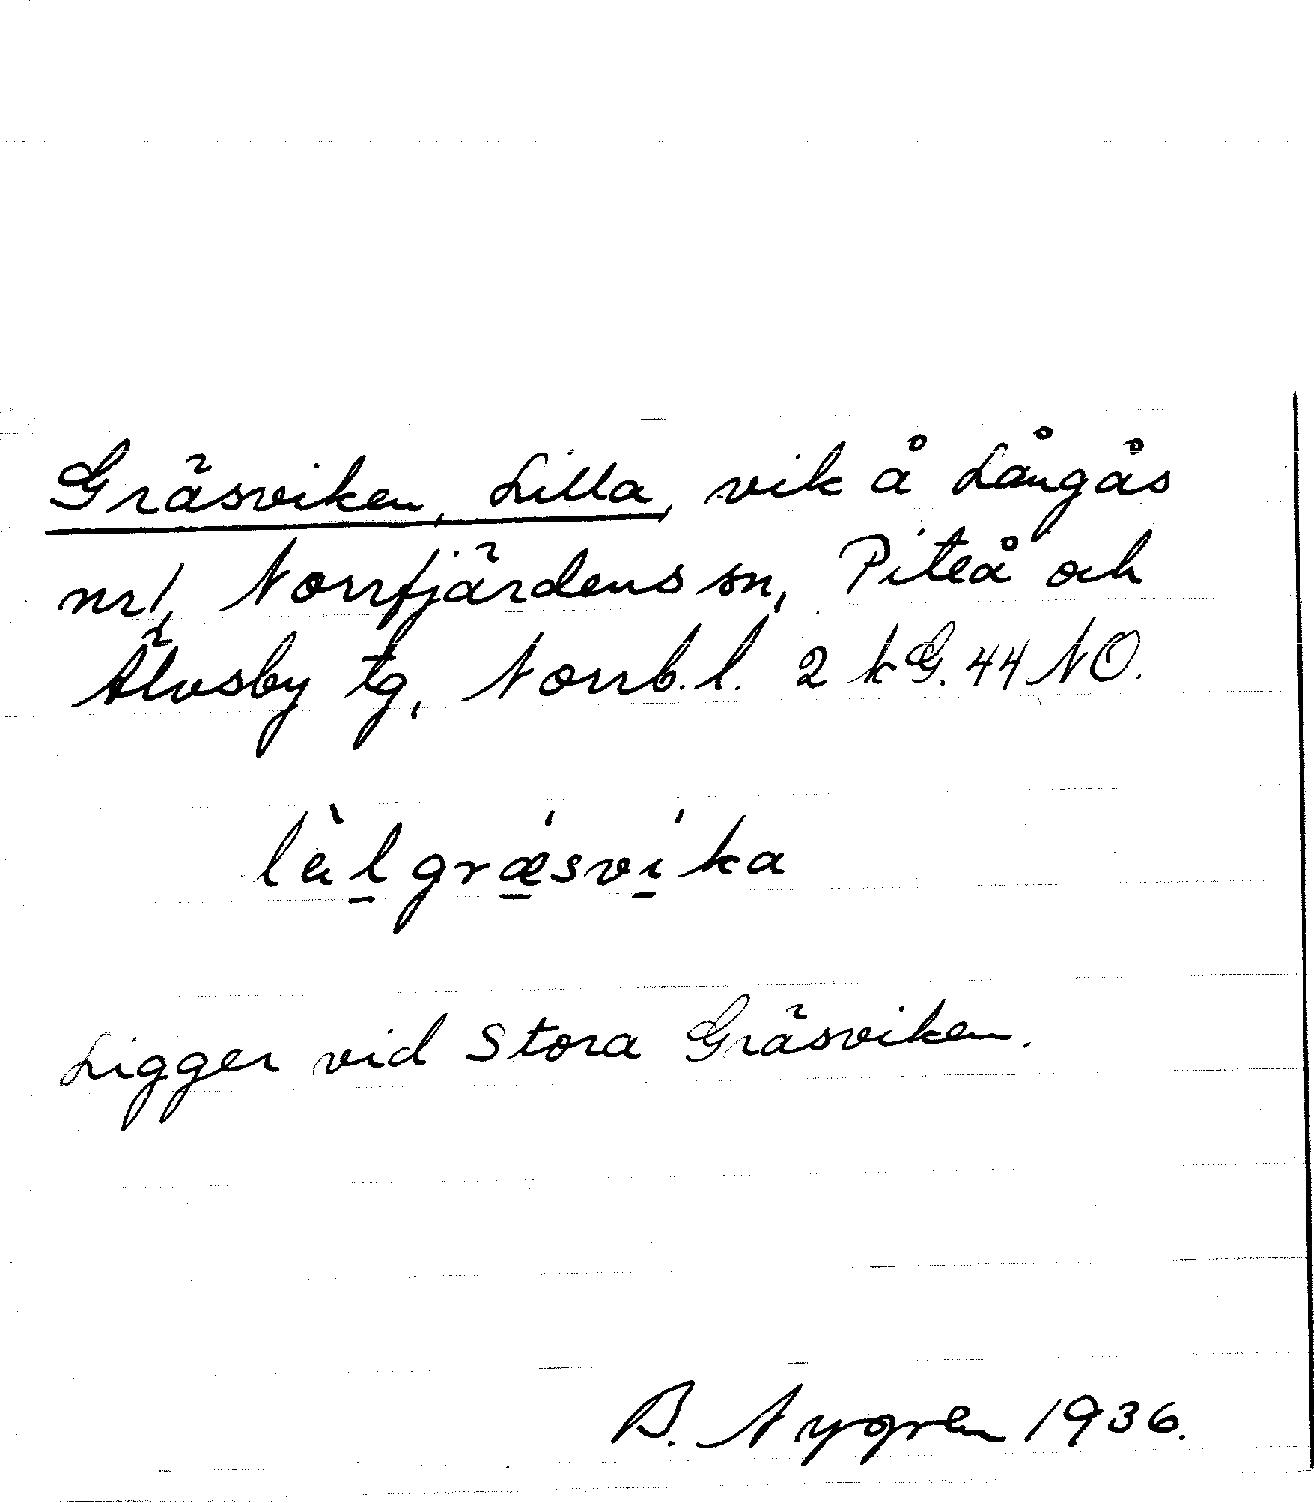 Gräsviken, Lilla, vik å Långås
nr 1, Norrfjärdens sn, Piteå och
Älvsby tg, Norrb. l. 2 k G. 44 NO.
lìl̠grǽ̠sví̠ka
Ligger vid Stora Gräsviken.
B. Nygren 1936.